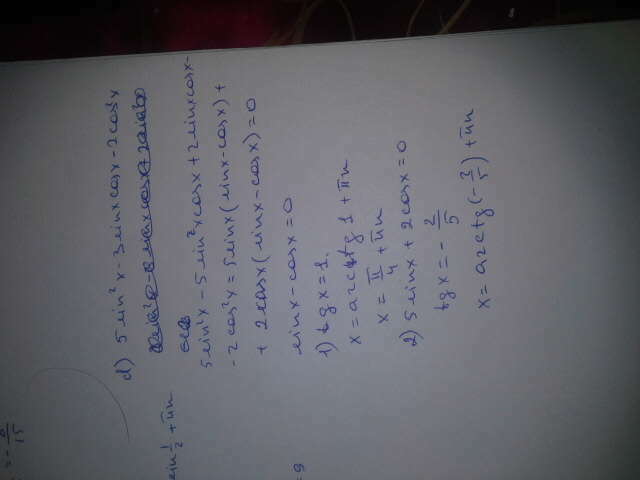 = - 8/15
sin 1/2 + πn
= 9
d) 5 sin²x - 3 sinx cosx - 2 cos²x
5 sin²x - 5 sin²x cosx + 2 sinx cosx -
- 2 cos²x = 5 sinx (sinx - cosx) +
+ 2 cosx (sinx - cosx) = 0
sinx - cosx = 0
1) tg x = 1.
x = arcctg 1 + πn
x = π/4 + πn
2) 5 sinx + 2 cosx = 0
tg x = - 2/5
x = arctg (- 2/5) + πn